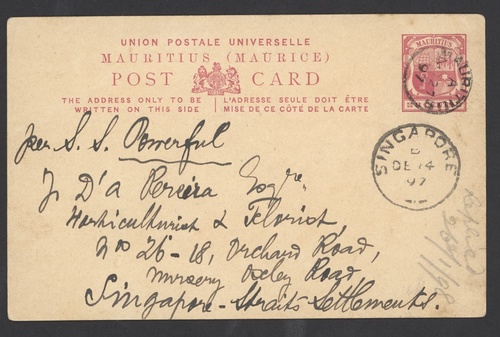 UNION POSTALE UNIVERSELLE
MAURITIUS (MAURICE)
POST CARD
THE ADDRESS ONLY TO BE WRITTEN ON THIS SIDE
L'ADRESSE SEULE DOIT ÊTRE MISE DE CE CÔTÉ DE LA CARTE
MAURITIUS
MAURITIUS
per S. S. Powerful
SINGAPORE
B
DE 14
97
D'a Pereira Esqre
Horticulturist & Florist
No 26-18, Orchard Road,
Nursery Oxley Road,
Singapore - Straits Settlements.